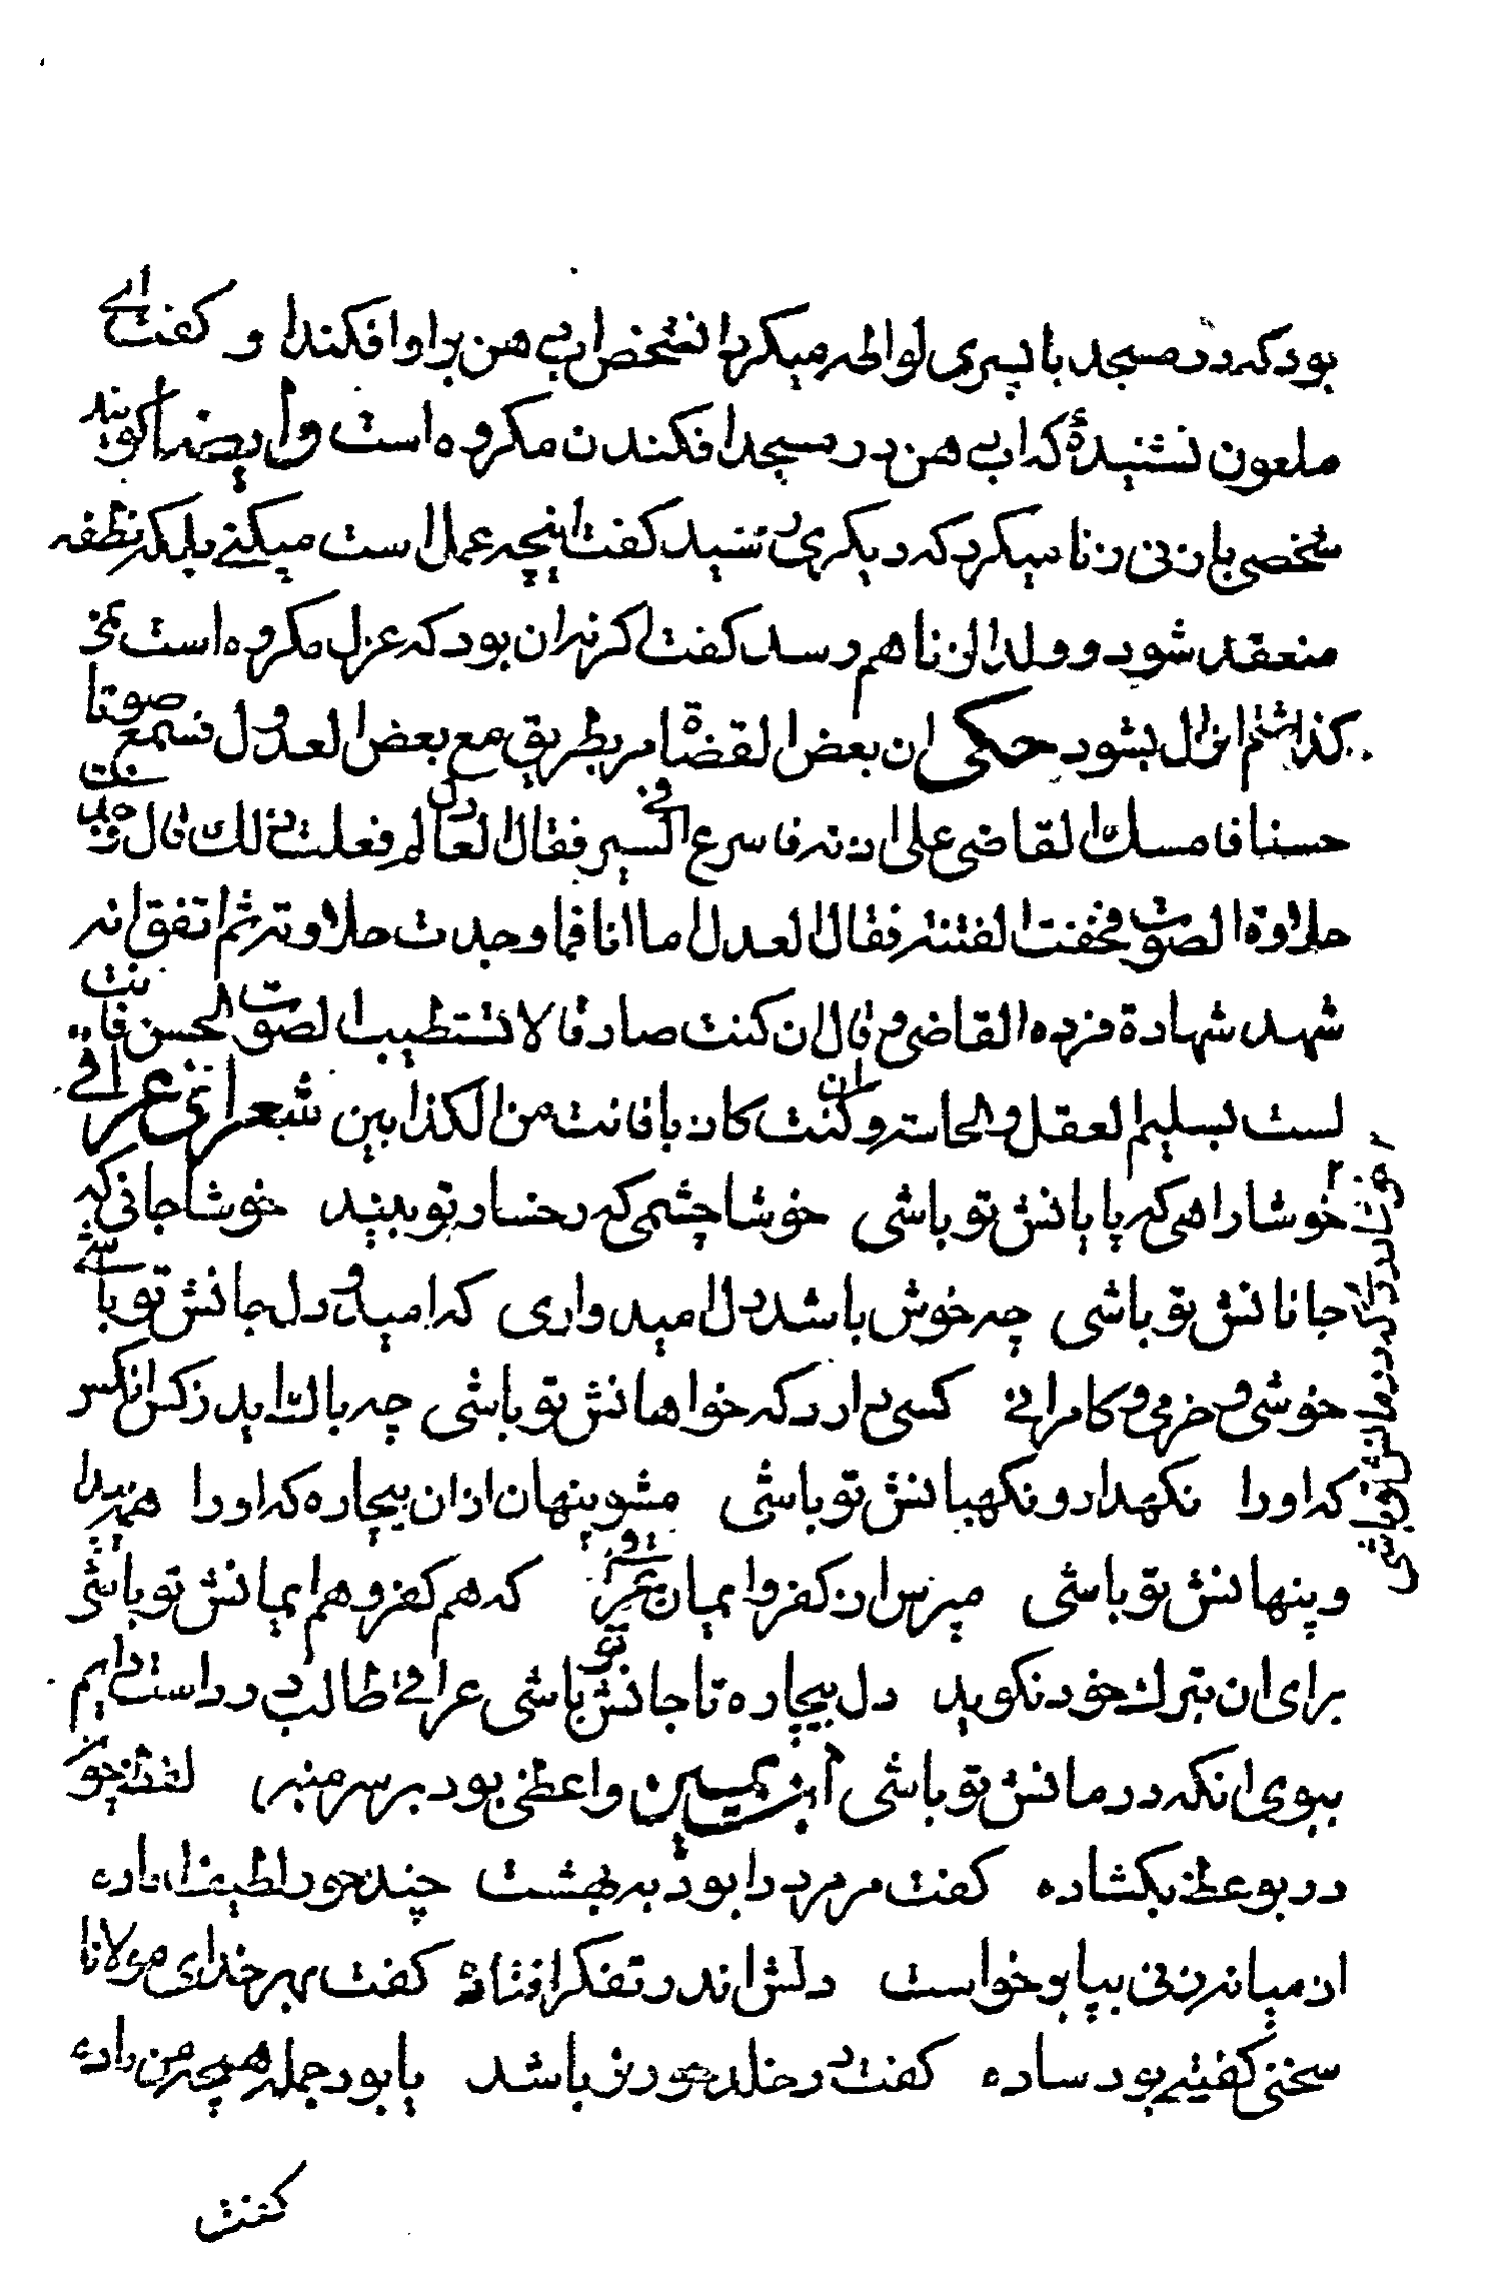 بود که در مسجد با پسری لواطه میکرد انشخص اب دهن بر او افکند او گفت ای
ملعون نشنیدهٔ که اب دهن در مسجد افکندن مکروه است وایضا گویند
شخصی با زنی زنا میکرد که دیگری رسید گفت اینچه عمل است میکنی بلکه نطفه
منعقد شود و ولد الزنا هم رسد گفت اگر نه ان بود که عزل مکروه است نمی
گذاشتم انزال بشود حکی ان بعض القضاة مر بطریق مع بعض العدول فسمع صوتا
حسنا فامسک القاضی علی اذنه فاسرع فی السیر فقال العدل لم فعلت ذلک قال وجدت
حلاوة الصوت فخفت الفتنه فقال العدل اما انا فما وجدت حلاوته ثم اتفق انه
شهد شهادة فرده القاضی و قال ان کنت صادقا لا تستطیب الصوت الحسن فانت
لست بسلیم العقل و الحاسه و ان کنت کاذبا فانت من الکذابین شعرا عراقی
خوشا راهی که پایانش تو باشی خوشا چشمی که رخسار تو بیند خوشا جانی که
جانانش تو باشی چه خوش باشد دل امیدواری که امید دل و جانش تو باشی
خوشی و خرمی و کامرانی کسی دارد که خواهانش تو باشی چه باک اید زکس انکس
که او را نگهدار و نگهبانش تو باشی مشو پنهان ازان بیچاره که او را همه پیدا
و پنهانش تو باشی مپرس از کفر و ایمان که هم کفر و هم ایمانش تو باشی
برای ان بترک خود نگوید دل بیچاره تا جانش تو باشی عراقی طالب درد است دایم
ببوی انکه درمانش تو باشی ابن یمین واعظی بود بر سر منبر لفظ چون
در بوعظ بگشاده گفت مر مرد را بود به بهشت چند حور لطیف اماده
از میانه زنی بپا بر خواست دلش اندر تفکر افتاده گفت بهر خدای مولانا
سخنی گفتیی بود ساده گفت در خلد حور نر باشد یا بود جمله همچو من ماده
گفت